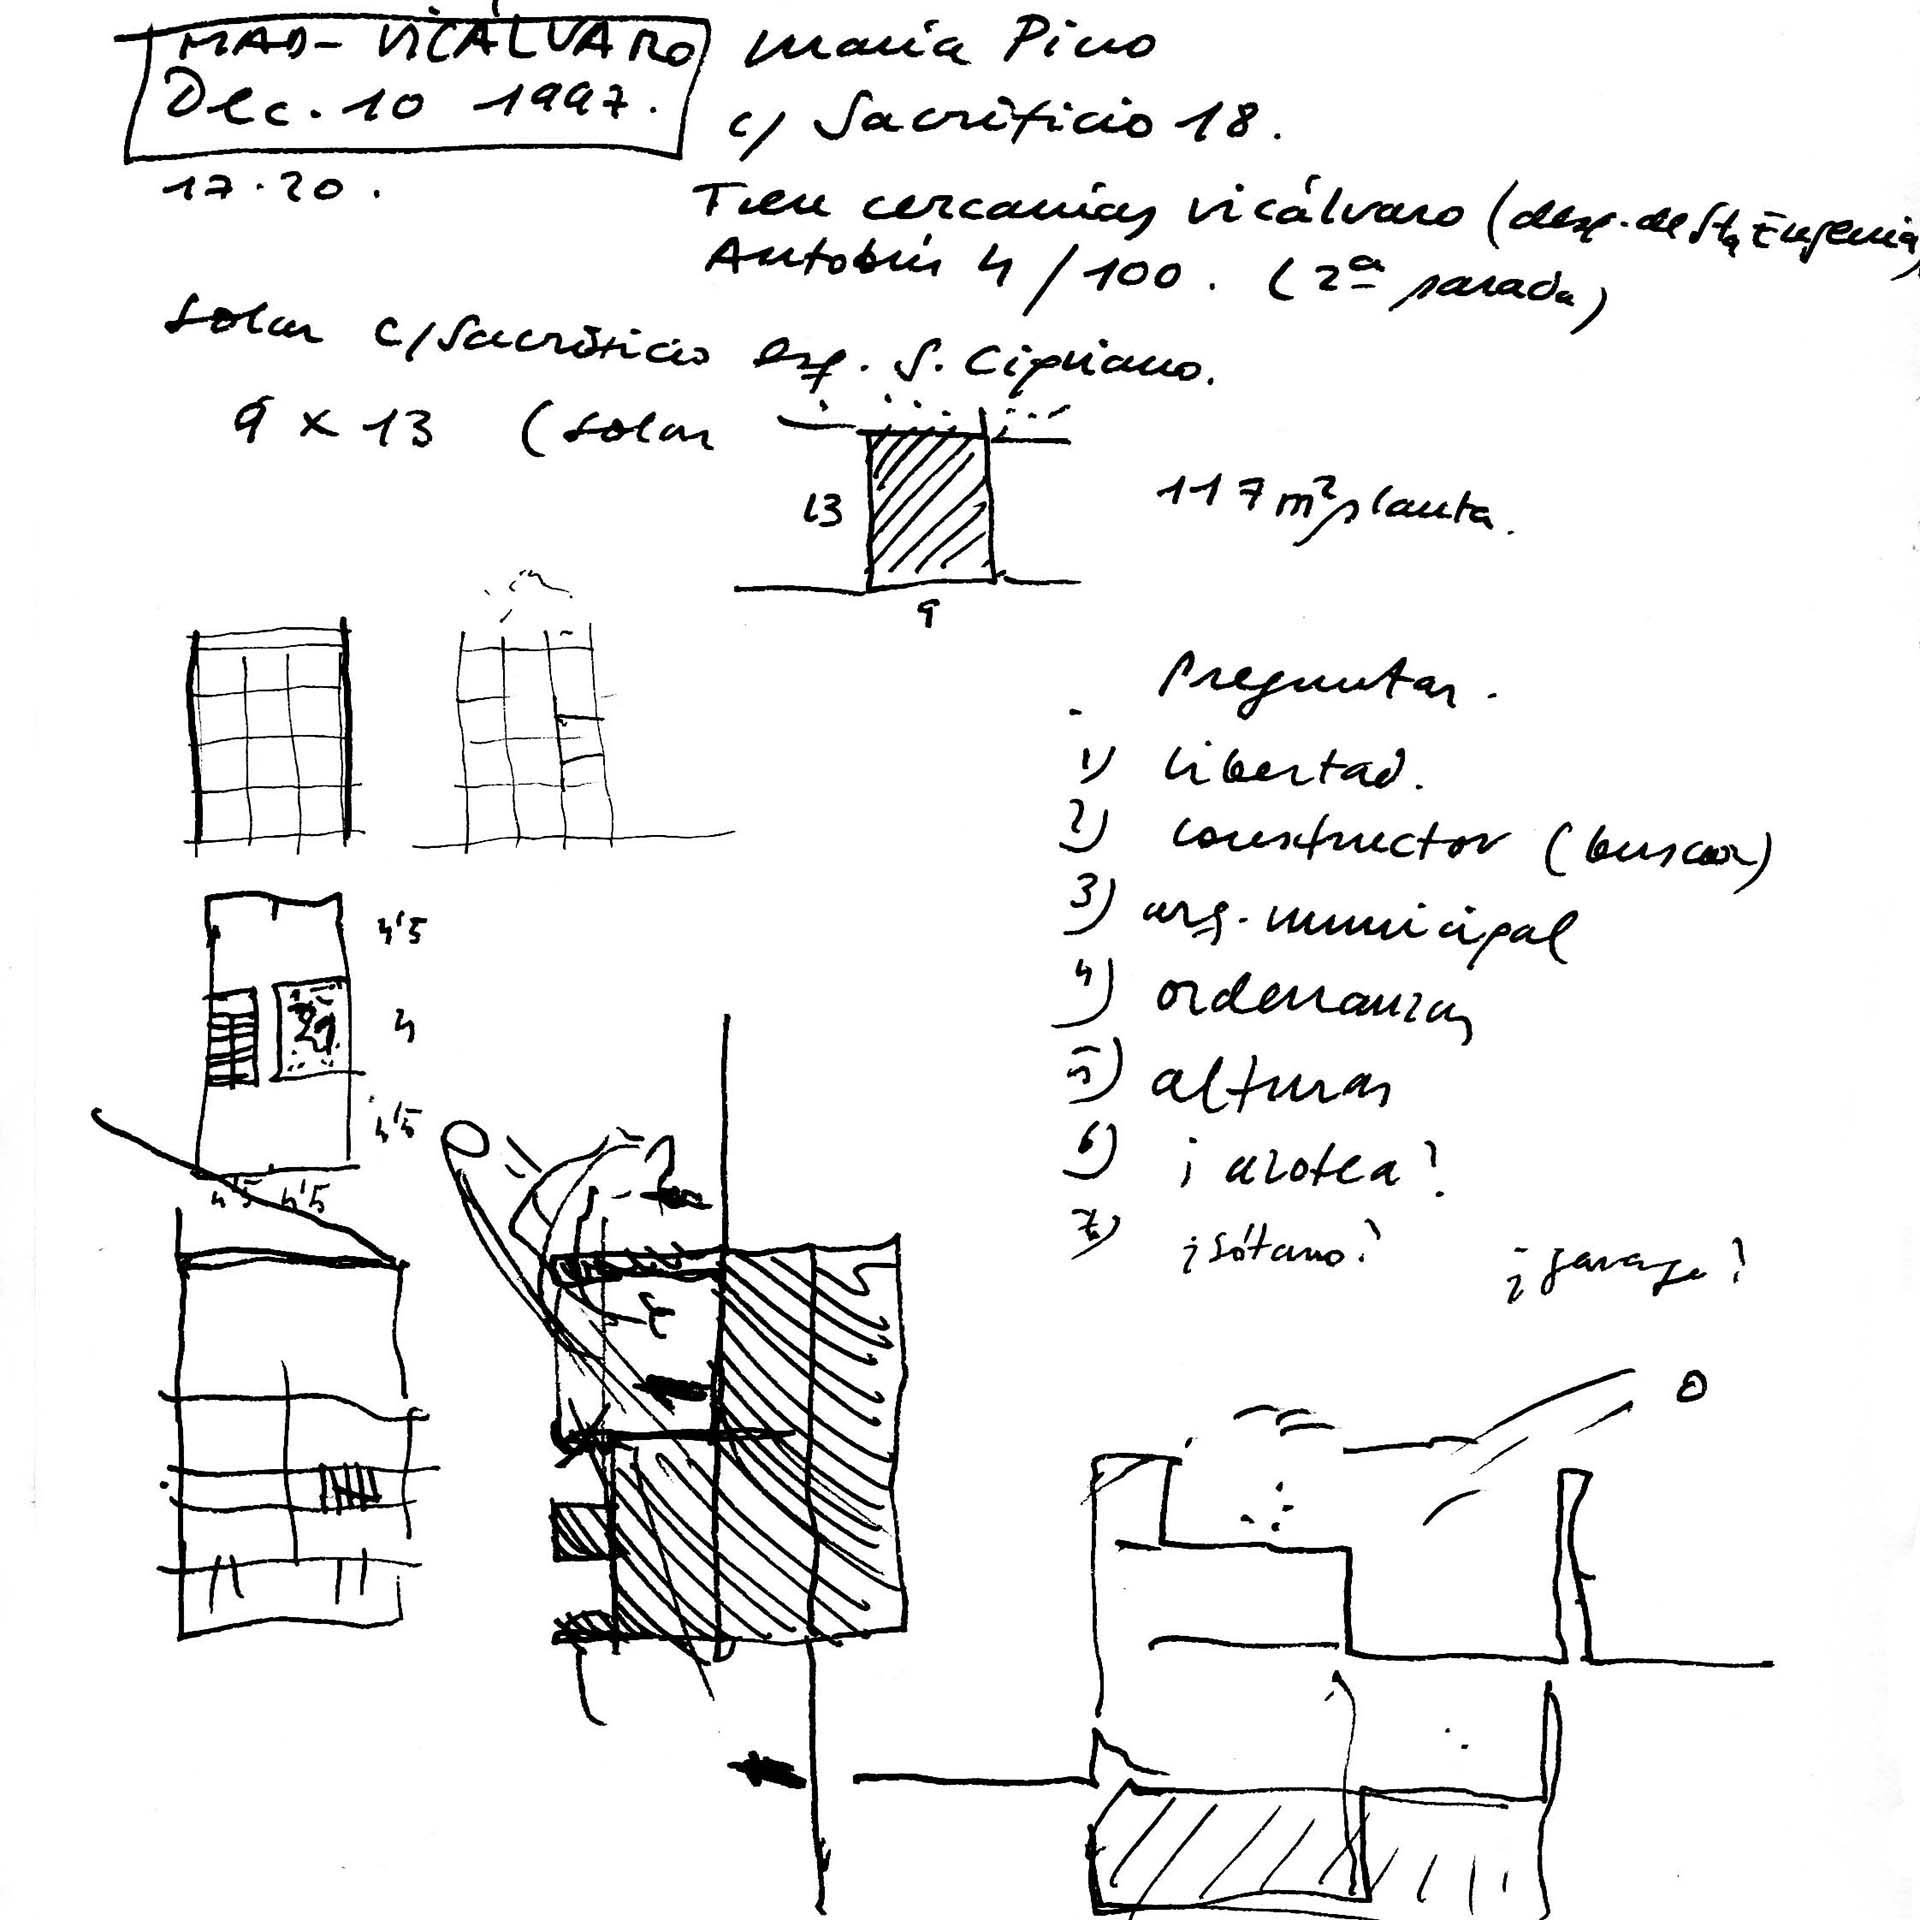 MAD- VICÁLVARO
Dec. 10 1997.
17.20.
Maria Pino
c/ Sacrificio 18.
Tren cercanias vicálvaro (desp. de Sta Eugenia)
Autobús 4/100. (2ª parada)
solar c/Sacrificio esq. S. Cipriano.
9 x 13 (solar
13
9
117 m² planta.
Preguntar.
1) libertad.
2) constructor (buscar)
3) arq. municipal
4) ordenanzas
5) alturas
6) ¡ azotea?
7) ¡ sótano? ¡ garage?
4'5
4
4'5
4'5 4'5